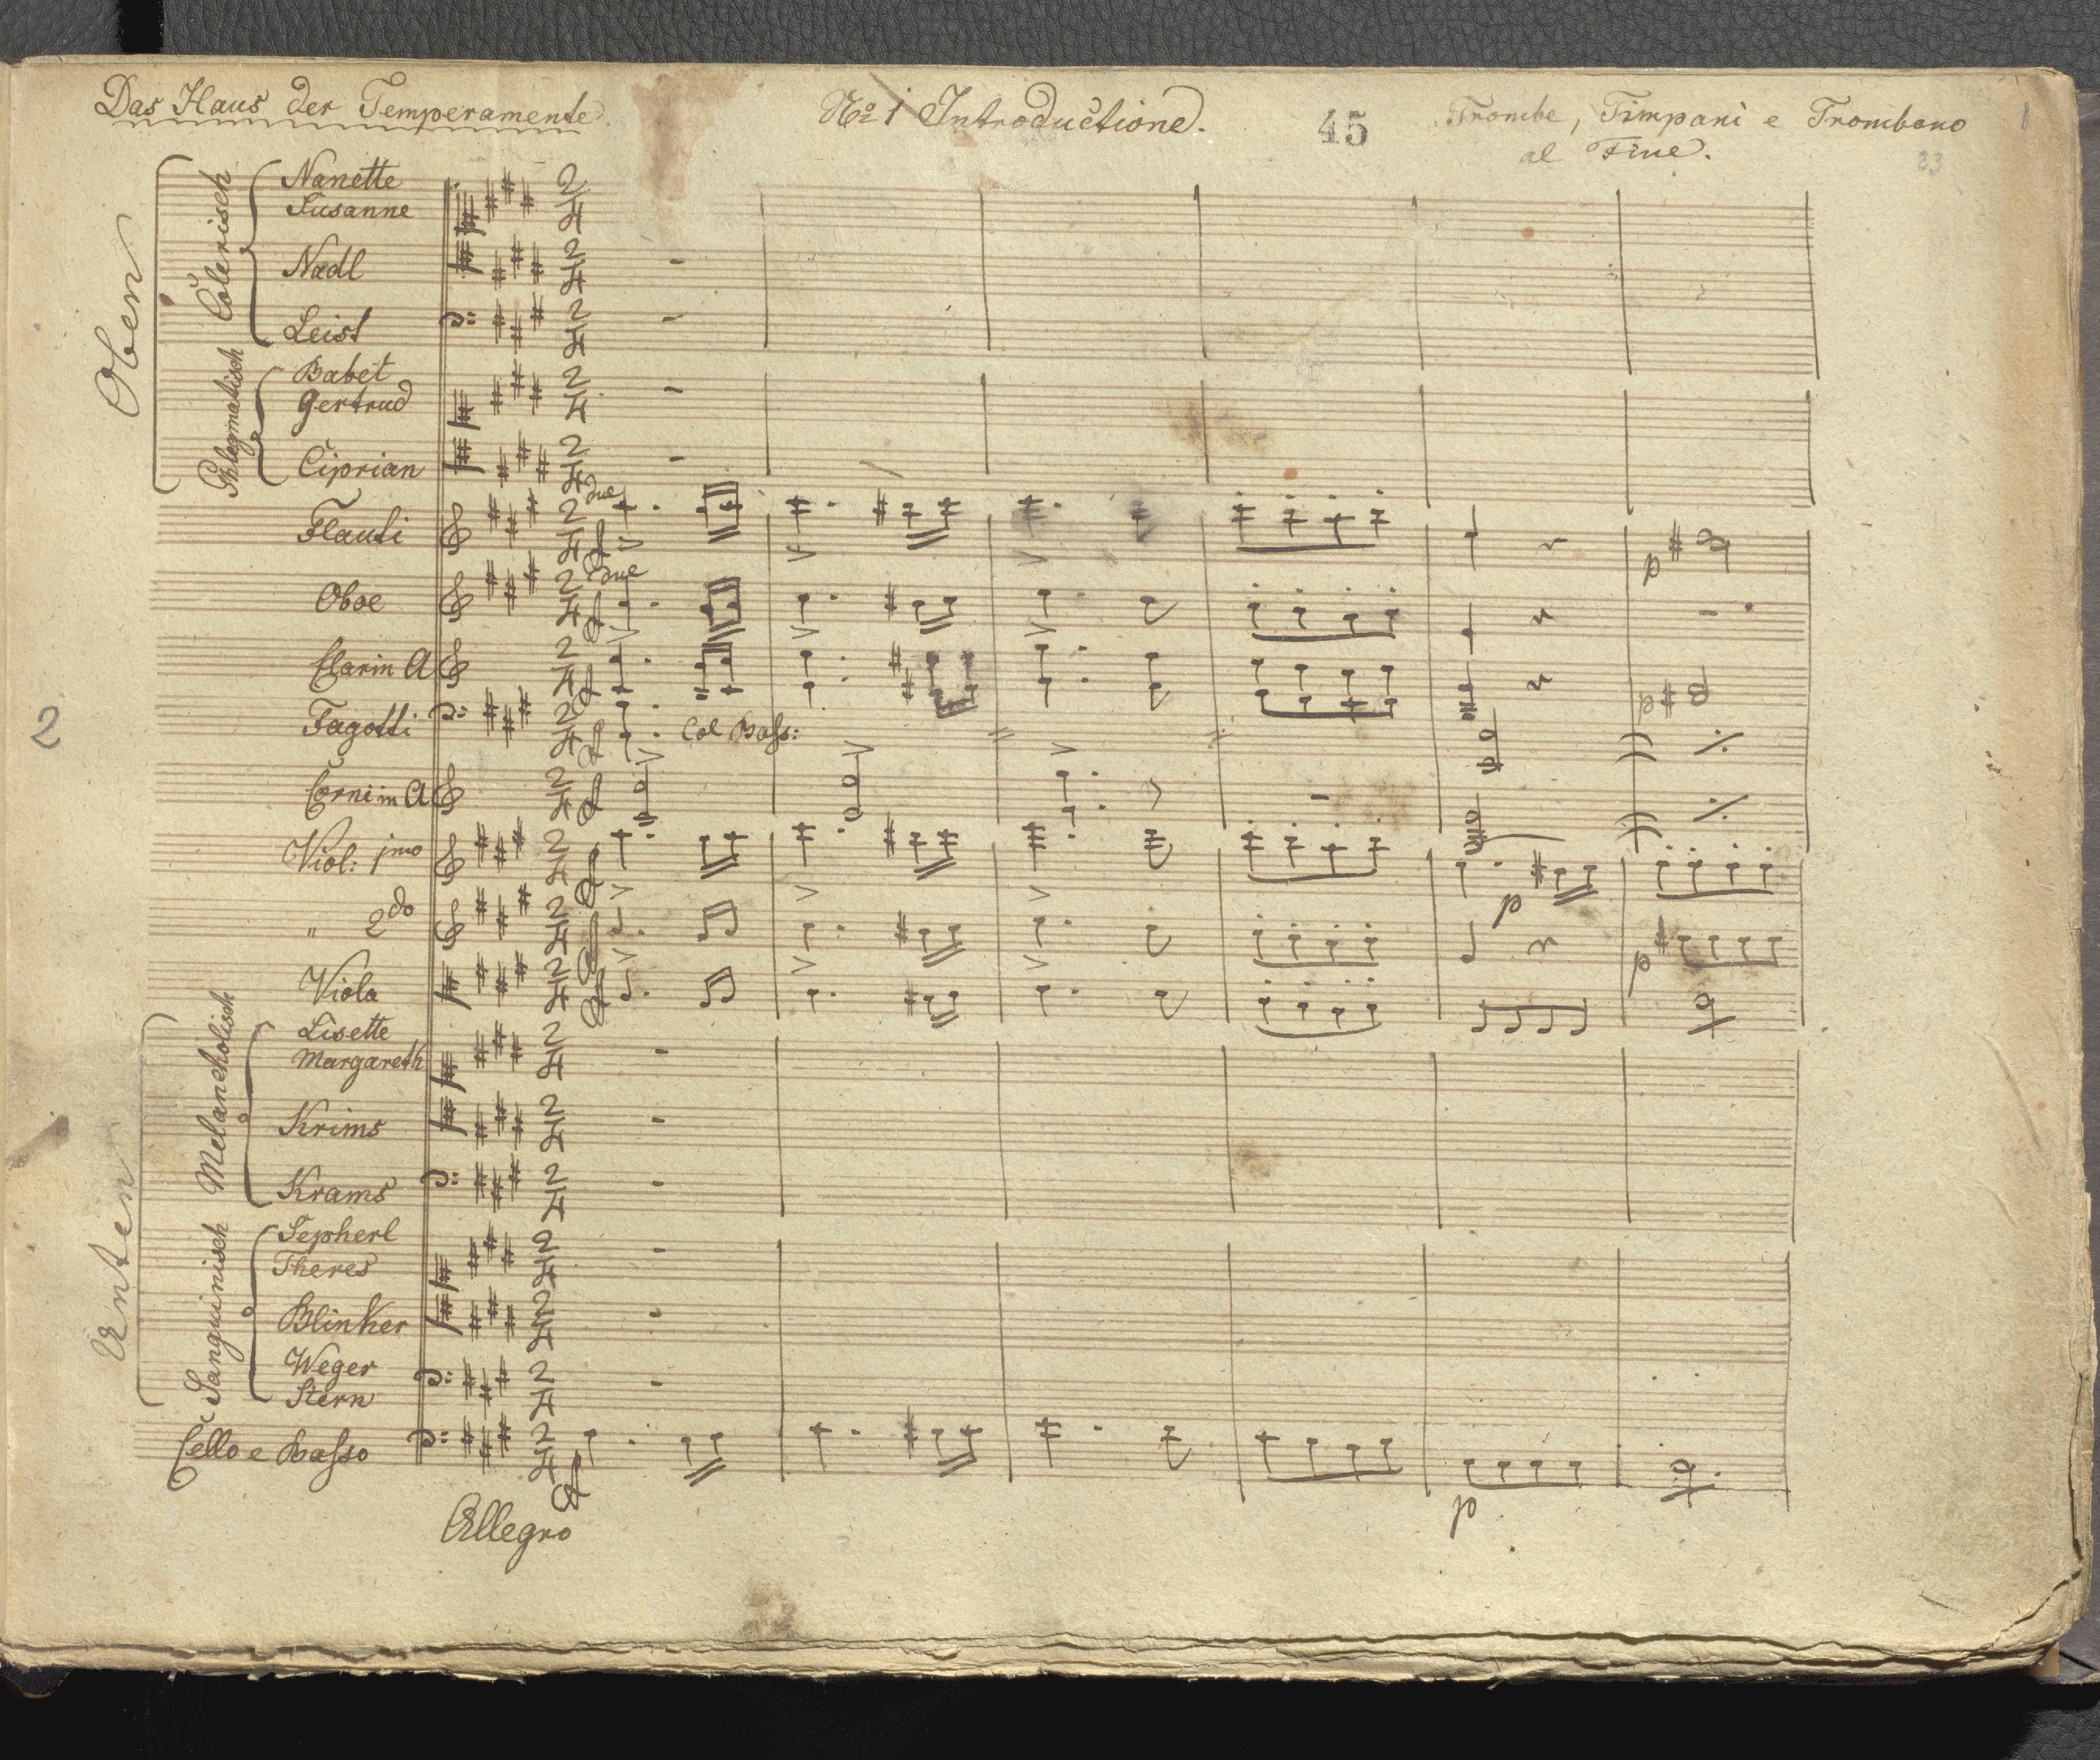 Das Haus der Temperamente. No 1 Introductione. 45 Trombe, Timpani e Trombono 1
al Fine. 23
Oben
Colerisch
Nanette
Susanne
Nadl
Leist
Phlegmatisch
Babet
Gertrud
Ciprian
Flauti due
Oboe due
Clar in A
Fagotti Col Bass:
2
Corni in A
Viol: jmo
" 2do
Viola
Unten
Melancholisch
Lisette
Margareth
Krims
Krams
Sanguinisch
Sepherl
Theres
Blinker
Weger
Stern
Cello e Basso
Allegro